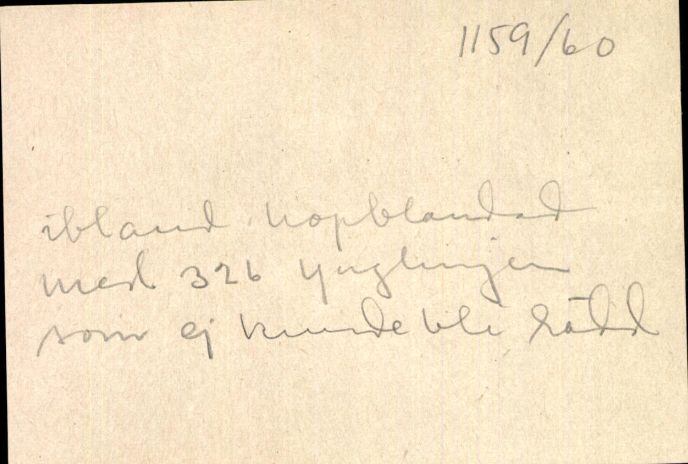 1159/60
ibland hopblandad
med 326 Ynglingen
som ej kunde bli rädd